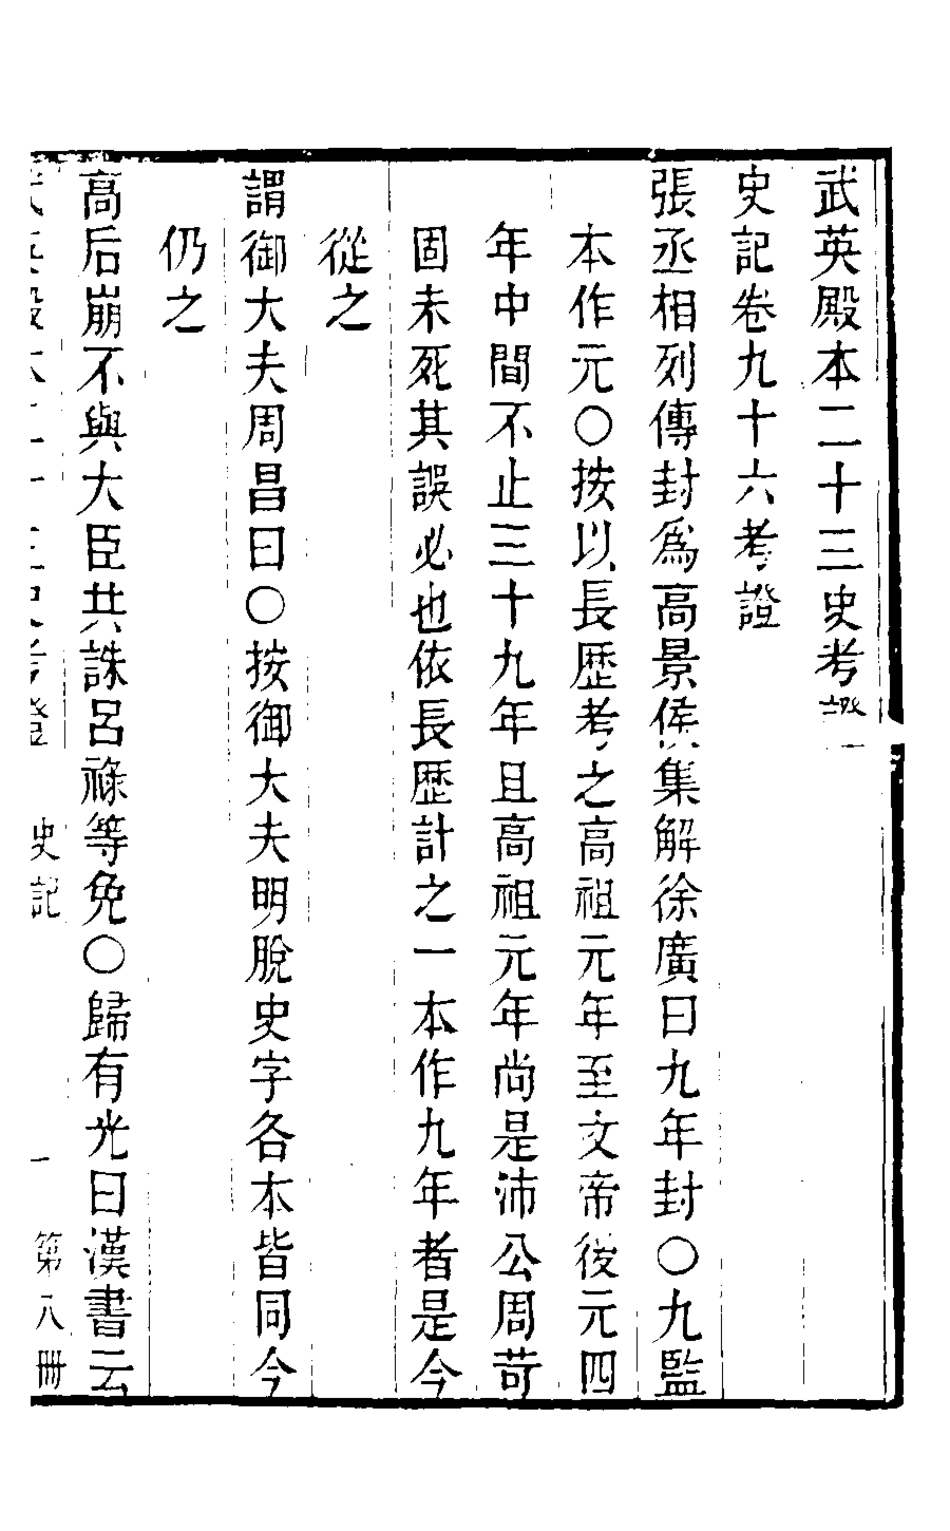 武英殿本二十三史考證
史記卷九十六考證
張丞相列傳封爲高景侯集解徐廣曰九年封○九監
本作元○按以長歷考之高祖元年至文帝後元四
年中間不止三十九年且高祖元年尚是沛公周苛
固未死其誤必也依長歷計之一本作九年者是今
從之
謂御大夫周昌曰○按御大夫明脫史字各本皆同今
仍之
高后崩不與大臣共誅呂祿等免○歸有光曰漢書云
武英殿本二十三史考證 史記 一 第八冊